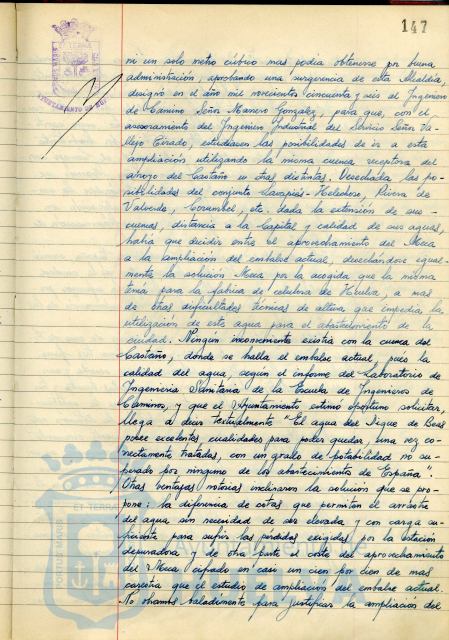 147
ni un solo metro cúbico mas podia obtenerse por buena
administración, aprobando una surgerencia de esta Alcaldía,
designó en el año mil novecientos cincuenta y seis al Ingeniero
de Camino Señor Marrero Gonzalez, para que, con el
asesoramiento del Ingeniero Industrial del Servicio Señor Va-
llejo Tirado, estudiasen las posibilidades de ir a esta
ampliación utilizando la misma cuenca receptora del
arroyo del Castaño u otras distintas. Desechadas las po-
sibilidades del conjunto Helechoso, Rivera de
Valverde, Corumbel, etc. dada la extensión de sus
cuencas, distancia a la Capital y calidad de sus aguas,
habia que decidir entre el aprovechamiento del Meca
a la ampliación del embalse actual, desechandose igual-
mente la solución Meca por la acogida que la misma
tenía para la fabrica de celulosa de Huelva, a mas
de otras dificultades técnicas de altura que impedía la
utilización de esta agua para el abastecimiento de la
ciudad. Ningún inconveniente existia con la cuenca del
Castaño, donde se halla el embalse actual, pues la
calidad del agua, según el informe del Laboratorio de
Ingenieria Sanitaria de la Escuela de Ingenieros de
Caminos, y que el Ayuntamiento estimó oportuno solicitar,
llega a decir textualmente "El agua del Dique de Beas
posee excelentes cualidades para poder quedar, una vez co-
rrectamente tratadas, con un grado de potabilidad no su-
perado por ninguno de los abastecimientos de España".
Otras ventajas notorias inclinaron la solución que se pro-
pone: la diferencia de cotas que permiten el arrastre
del agua sin necesidad de ser elevada y con carga su-
ficiente para sufrir las pérdidas exigidas por la estación
depuradora y de otra parte el coste del aprovechamiento
del Meca cifrado en casi un cien por cien de mas
carestía que el estudio de ampliación del embalse actual.
No obstamos baladimente para justificar la ampliación del